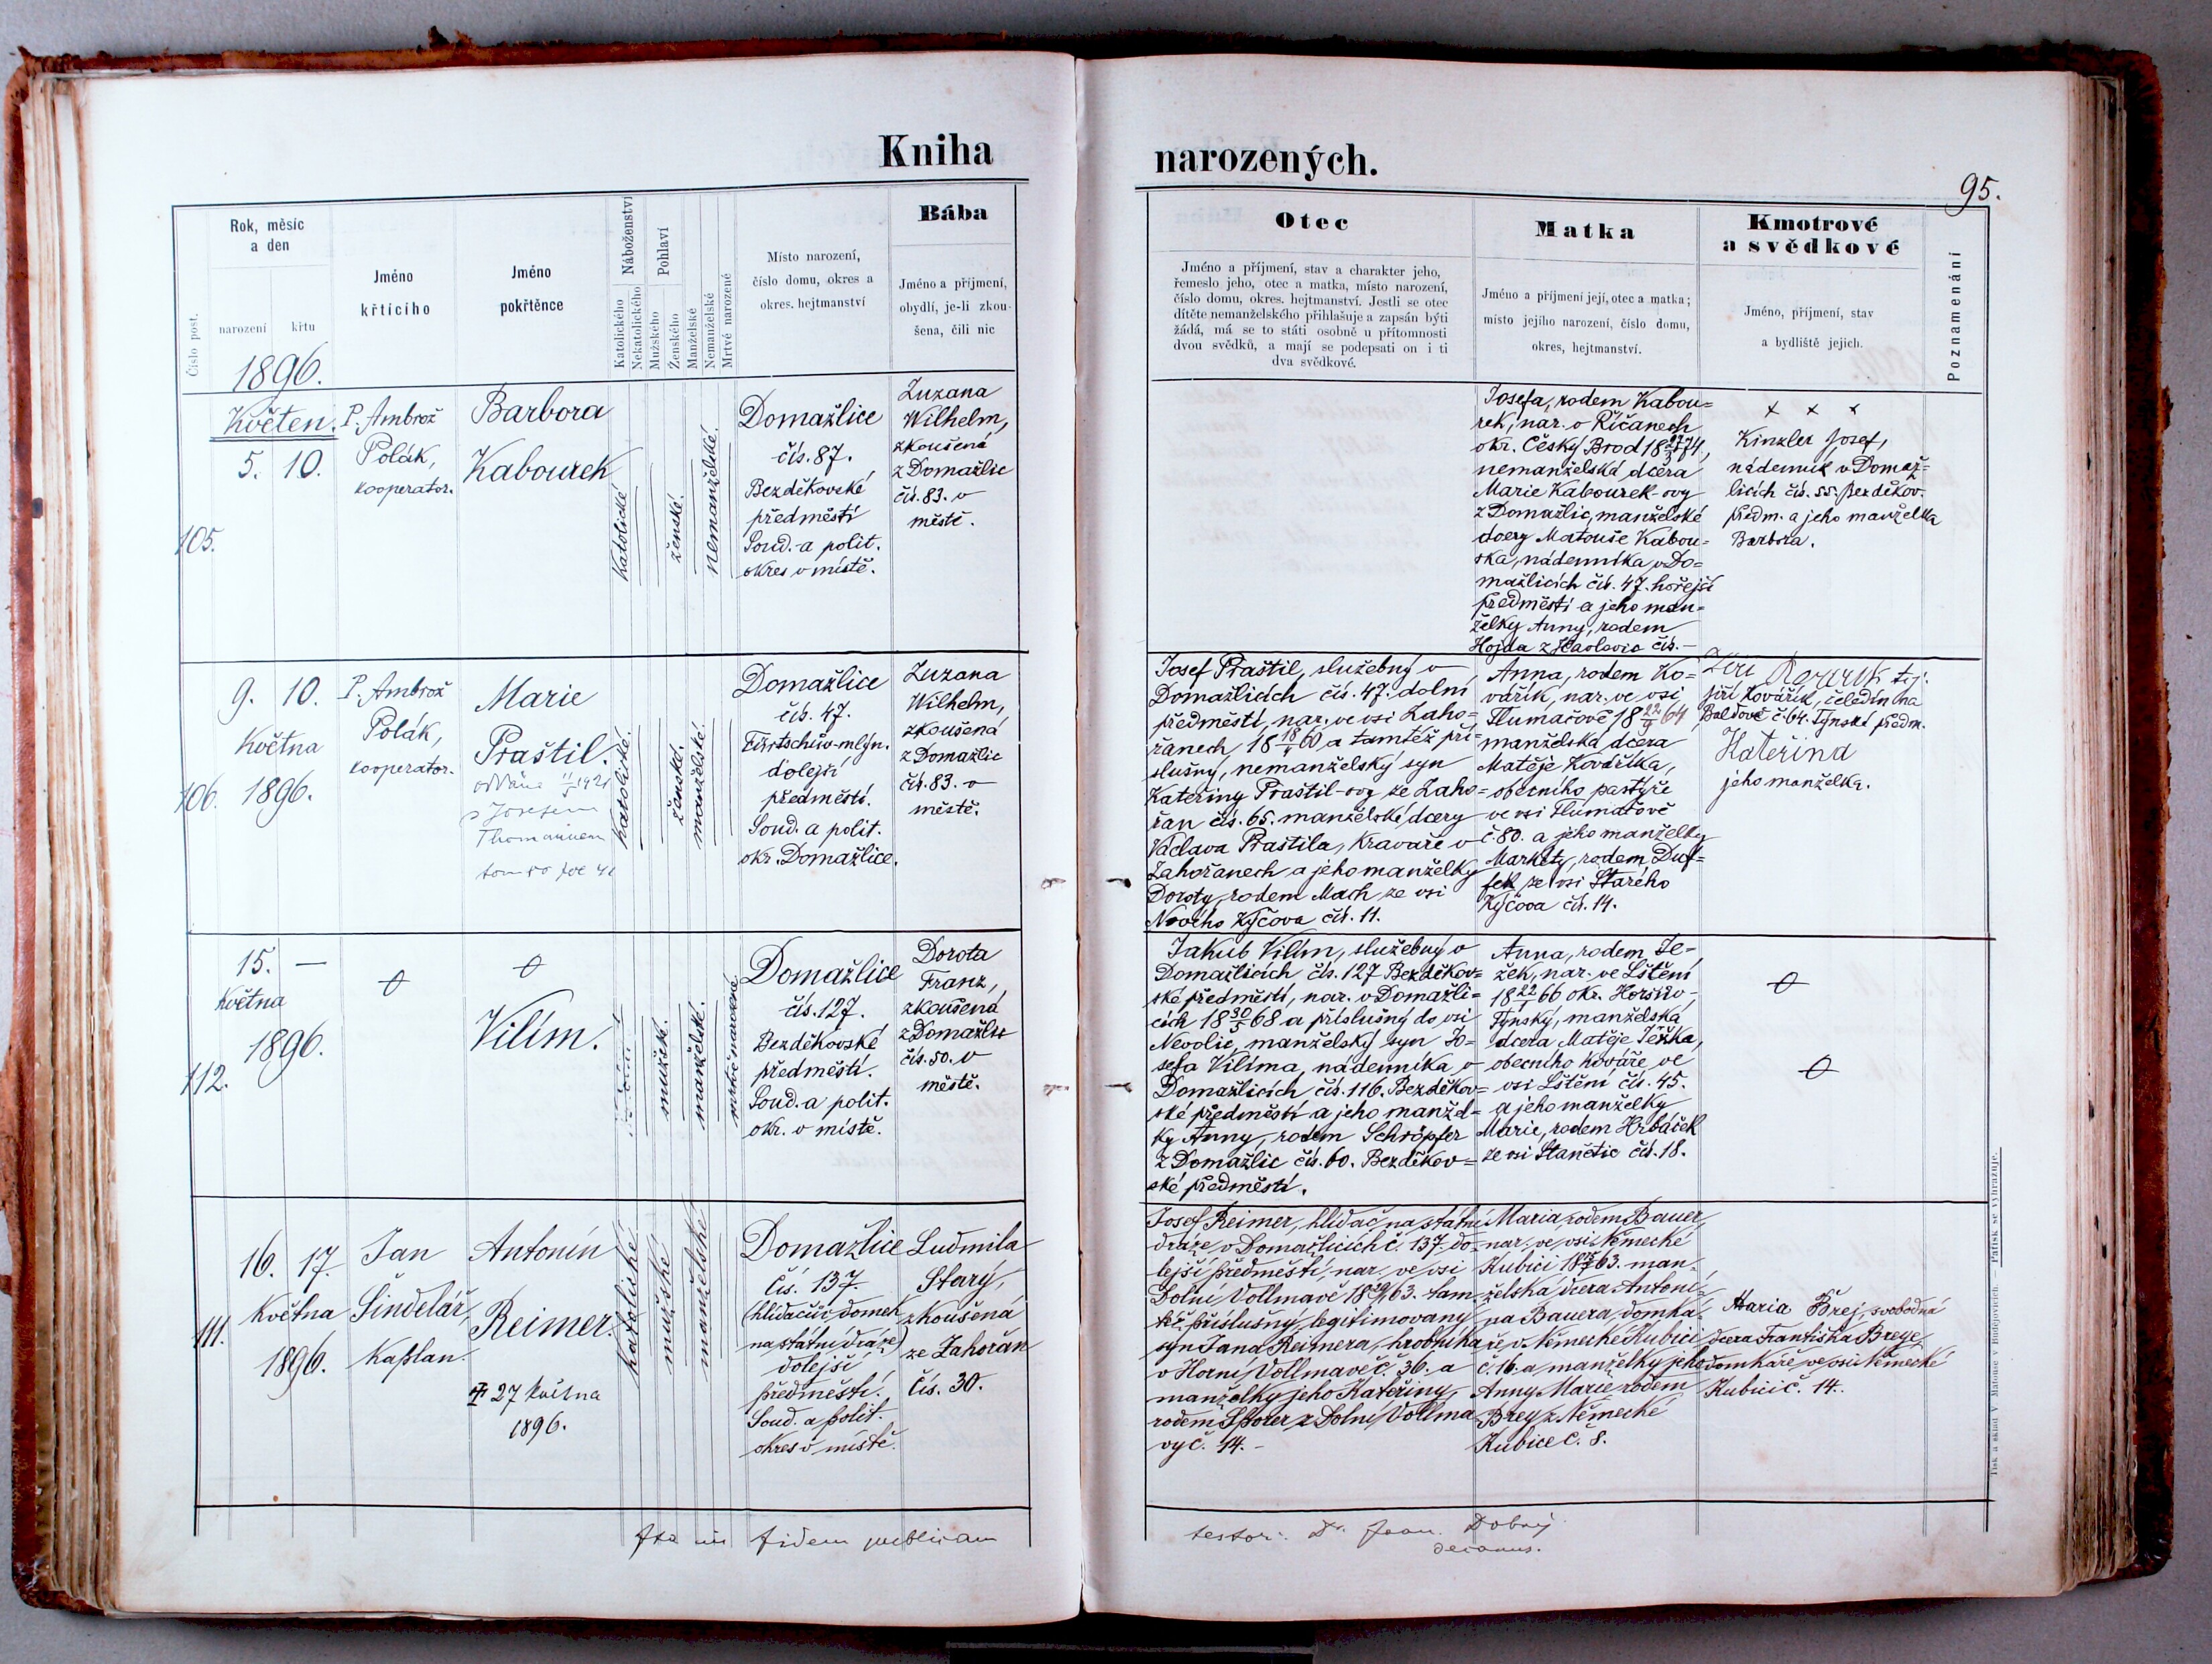 Kniha
narozených.
95.
Číslo post.
Rok, měsíc
a den
narození
křtu
1896.
Jméno
křtícího
Jméno
pokřtěnce
Náboženství
Katolického
Nekatolického
Pohlaví
Mužského
Ženského
Manželské
Nemanželské
Mrtvě narozené
Místo narození,
číslo domu, okres a
okres. hejtmanství
Bába
Jméno a příjmení,
obydlí, je-li zkou-
šena, čili nic
Otec
Jméno a příjmení, stav a charakter jeho,
řemeslo jeho, otec a matka, místo narození,
číslo domu, okres. hejtmanství. Jestli se otec
dítěte nemanželského přihlašuje a zapsán býti
žádá, má se to státi osobně u přítomnosti
dvou svědků, a mají se podepsati on i ti
dva svědkové.
Matka
Jméno a příjmení její, otec a matka;
místo jejího narození, číslo domu,
okres, hejtmanství.
Kmotrové
a svědkové
Jméno, příjmení, stav
a bydliště jejich.
Poznamenání
105.
Květen.
5. 10.
P. Ambrož
Polák,
kooperator.
Barbora
Kabourek
Katolické
ženské.
nemanželské.
Domažlice
čís. 87.
Bezděkovské
předměstí
Soud.- a polit.
okres v místě.
Zuzana
Wilhelm,
zkoušená
z Domažlic
čís. 83. v
městě.
Josefa, rodem Kabou=
rek, nar. v Říčanech
okr. Český Brod 18 74,
nemanželská dcera
Marie Kabourek-ovy
z Domažlic, manželské
dcery Matouše Kabou-
rka, nádenníka v Do=
mažlicích čís. 47. hořejší
předměstí a jeho man=
želky Anny, rodem
Hojda z čís. —
x x x
Kinzler Josef,
nádenník v Domaž=
licích čís. 55. Bezděkov.
předm. a jeho manželka
Barbora.
106.
9. 10.
Května
1896.
P. Ambrož
Polák,
kooperátor.
Marie
Praštil.
oddána 11/5 1921
s Josefem
Thomainem
Katolické.
ženské.
manželské.
Domažlice
čís. 47.
mlýn.
dolejší
předměstí.
Soud. a polit.
okr. Domažlice.
Zuzana
Wilhelm,
zkoušená
z Domažlic
čís. 83. v
městě.
Josef Praštil, služebný v
Domažlicích čís. 47. dolní
předměstí, nar. ve vsi Zaho=
řanech 18 18/5 60 a tamtéž pří=
slušný, nemanželský syn
Kateřiny Praštil-ovy ze Zaho=
řan čís. 65. manželské dcery
Václava Praštila, kraváře v
Zahořanech a jeho manželky
Doroty, rodem Mach ze vsi
Nového Kyčova čís. 11.
Anna, rodem Ko=
vářík, nar. ve vsi
Tlumačově 18 22/5 64
manželská dcera
Matěje Kováříka,
obecního pastýře
ve vsi Tlumačově
č. 80. a jeho manželky
Markéty, rodem Duf=
fek ze vsi Starého
Kyčova čís. 14.
Jiří Kovářík, čeledín na
Baldově č. 64. Týnské předm.
Kateřina
jeho manželka.
112.
15. —
Května
1896.
Vilím.
mužské.
manželské.
mrtvě narozené
Domažlice
čís. 127.
Bezděkovské
předměstí.
Soud. a polit.
okr. v místě.
Dorota
Franz,
zkoušená
z Domažlic
čís. 50. v
městě.
Jakub Vilím, služebný v
Domažlicích čís. 127 Bezděkov=
ské předměstí, nar. v Domažli=
cích 18 30/5 68 a příslušný do vsi
Nevolic, manželský syn Jo=
sefa Vilíma, nádenníka v
Domažlicích čís. 116. Bezděkov=
ské předměstí a jeho manžel=
ky Anny, rodem Schröpfer
z Domažlic čís. 60. Bezděkov=
ské předměstí.
Anna, rodem Je-
žek, nar. ve Lštění
18 22/1 66 okr. Horšův-
Týnský, manželská
dcera Matěje Ježka,
obecního kováře ve
vsi Lštění čís. 45.
a jeho manželky
Marie, rodem Hrbáček
ze vsi Stančtic čís. 18.
111.
16. 17.
Května
1896.
Jan
Šindelář,
kaplan.
Antonín
Reimer.
27 května
1896.
Katolické
mužské
manželské
Domažlice
čís. 137.
(hlídačův domek
na státní dráze)
dolejší
předměstí.
Soud. a polit.
okres v místě.
Ludmila
Starý,
zkoušená
ze Zahořan
čís. 30.
Josef Reimer, hlídač na státní
dráze v Domažlicích č. 137. do=
lejší předměstí, nar. ve vsi
Dolní Vollmavě 18 63. tam=
též příslušný, legitimovaný
syn Jana Reimera, hrobníka
v Horní Vollmavě č. 36. a
manželky jeho Kateřiny,
rodem Sporer z Dolní Vollma
vy č. 14. -
Maria rodem Bauer,
nar. ve vsi Německé
Kubici 18 63. man-
želská dcera Antoní-
na Bauera, domká-
ře v Německé Kubici
č. 16. a manželky jeho
Anny Marie rodem
Brey z Německé
Kubice č. 8.
Maria Brej, svobodná
dcera Františka Breye,
domkáře ve vsi Německé
Kubici č. 14.
Ita in fidem publicam
testor: Dr. Joan. Dobrý
decanus.
Tisk a sklad V. Matouše v Budějovicích. — Patisk se vyhrazuje.